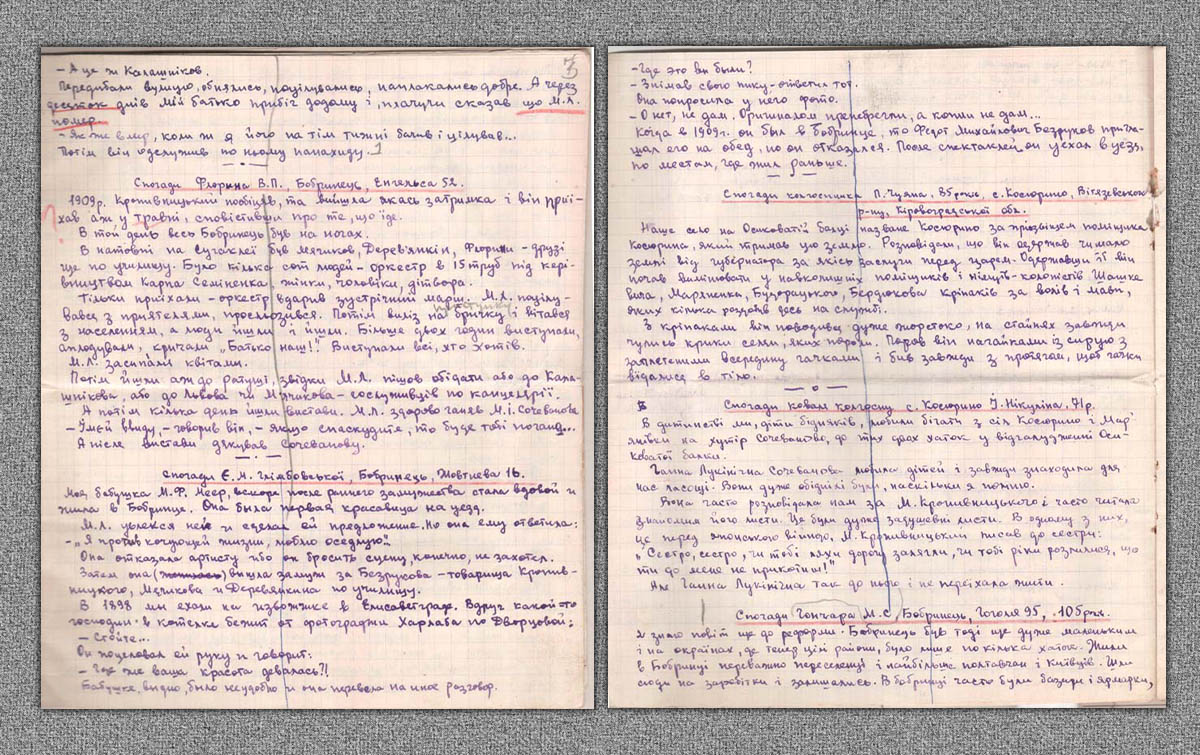 3
– А це ж Калашніков.
Передибали вулицю, обнялись, поцілувались, наплакались добре. А через
десяток днів мій батько прибіг додому і, плачучи сказав що М.Л.
помер.
– Як же вмер, коли ж я його на тім тижні бачив і цілував...
Потім він одслужив по ньому панахиду.
Спогади Флорина В.П., Бобринець, Енгельса 52.
1909 р. Кропивницький пообіцяв, та вийшла якась затримка і він приї-
хав аж у травні, сповістивши про те, що їде.
В той день весь Бобринець був на ногах.
В натовпі на Сугаклеї був Мячиков, Дерев'янкін, Флорин – друзі
ще по училищу. Було кілька сот людей – оркестр в 15 труб під кері-
вництвом Карпа Семіненка, жінки, чоловіки, дітвора.
Тільки приїхали – оркестр вдарив зустрічний марш. М.Л. поцілу-
вався з приятелями, прослизився. Потім виліз на бричку і вітався
з населенням, а люди йшли й йшли. Більше двох годин виступали,
аплодували, кричали „Батько наш!". Виступали всі, хто хотів.
М.Л. засипали квітами.
Потім йшли аж до ратуші, звідки М.Л. пішов обідати або до Кала-
шнікова, або до Львова чи Мячикова – сослуживців по канцелярії.
А потім кілька день йшли вистави. М.Л. здорово ганяв М.І. Сочеванова
– Імей ввиду, – говорив він, – якщо спаскудите, то буде тобі погано...
А після вистави дякував Сочеванову.
Спогади Є.М. Глембовської, Бобринець, Жовтнева 16.
Моя бабушка М.Ф. Меер, вскоре после раннего замужества стала вдовой и
жила в Бобринце. Она была первая красавица на уезд.
М.Л. увлекся нею и сделал ей предложение. Но она ему ответила:
– „Я против кочующей жизни, люблю оседлую".
Она отказала артисту ибо он бросить сцену, конечно, не захотел.
Затем она вышла замуж за Безрукова – товарища Кропив-
ницкого, Мячикова и Деревянкина по училищу.
В 1898 мы ехали на извозчике в Елисаветграде. Вдруг какой-то
господин в котелке бежит от фотографии Харлаба по Дворцовой:
– Стойте...
Он поцеловал ей руку и говорит:
– Где же ваша красота девалась?!
Бабушке, видно, было неудобно и она перевела на иное разговор.
– Где это вы были?
– Знімав свою пику – ответил тот.
Она попросила у него фото.
– О нет, не дам. Оригиналом пренебрегли, а копии не дам...
Когда в 1909 г. он был в Бобринце, то Федот Михайлович Безруков пригла-
шал его на обед, но он отказался. После спектаклей он уехал в уезд,
по местам, где жил раньше.
Спогади колгоспника П. Цуяна, 85 років, с. Косюрино, Вітязевського
р-ну, Кіровоградської обл.
Наше село на Осиковатій балці назване Косюрино за прізвищем поміщика
Косюрина, який тримав цю землю. Розповідали, що він одержав чимало
землі від губернатора за якісь заслуги перед царем. Одержавши її він
почав вимінювати у навколишніх поміщиків і німців-колоністів Шашке
вича, Марленка, Буторацького, Бердюкова кріпаків за волів і мавп,
яких кілька роздобув десь на службі.
З кріпаками він поводився дуже жорстоко, на стайнях завжди
чулись крики селян, яких пороли. Поров він нагайками із сирцю з
заплетеними всередину гачками і бив завжди з протягом, щоб гачки
вїдались в тіло.
Спогади коваля колгоспу с. Косюрино Й. Нікуліна, 71 р.
В дитинстві ми, діти бідняків, любили бігати з сіл Косюрино і Мар'
янівки на хутір Сочеванство, до тих двох хаток у відгалудженні Оси-
коватої балки.
Ганна Лукінічна Сочеванова любила дітей і завжди знаходила для
нас ласощі. Вони дуже обідніли були, наскільки я помню.
Вона часто розповідала нам за М. Кропивницького і часто читала
знайомим його листи. Це були дуже задушевні листи. В одному з них,
ще перед японською війною, М. Кропивницький писав до сестри:
„Сестро, сестро, чи тобі ляхи дорогу залягли, чи тобі ріки розлилися, що
ти до мене не прикотиш!"
Але Ганна Лукінічна так до нього і не переїхала жити.
Спогади Гончара М.С. Бобринець, Гоголя 95, 10 брп.
Я знаю повіт ще до реформи. Бобринець був тоді ще дуже маленьким
і на окраїнах, де тепер цілі райони, було лише по кілька хаток. Жили
в Бобринці переважно переселенці і найбільше полтавчан і київців. Йшли
сюди на заробітки і залишались. В Бобринці часто були базари і ярмарки,